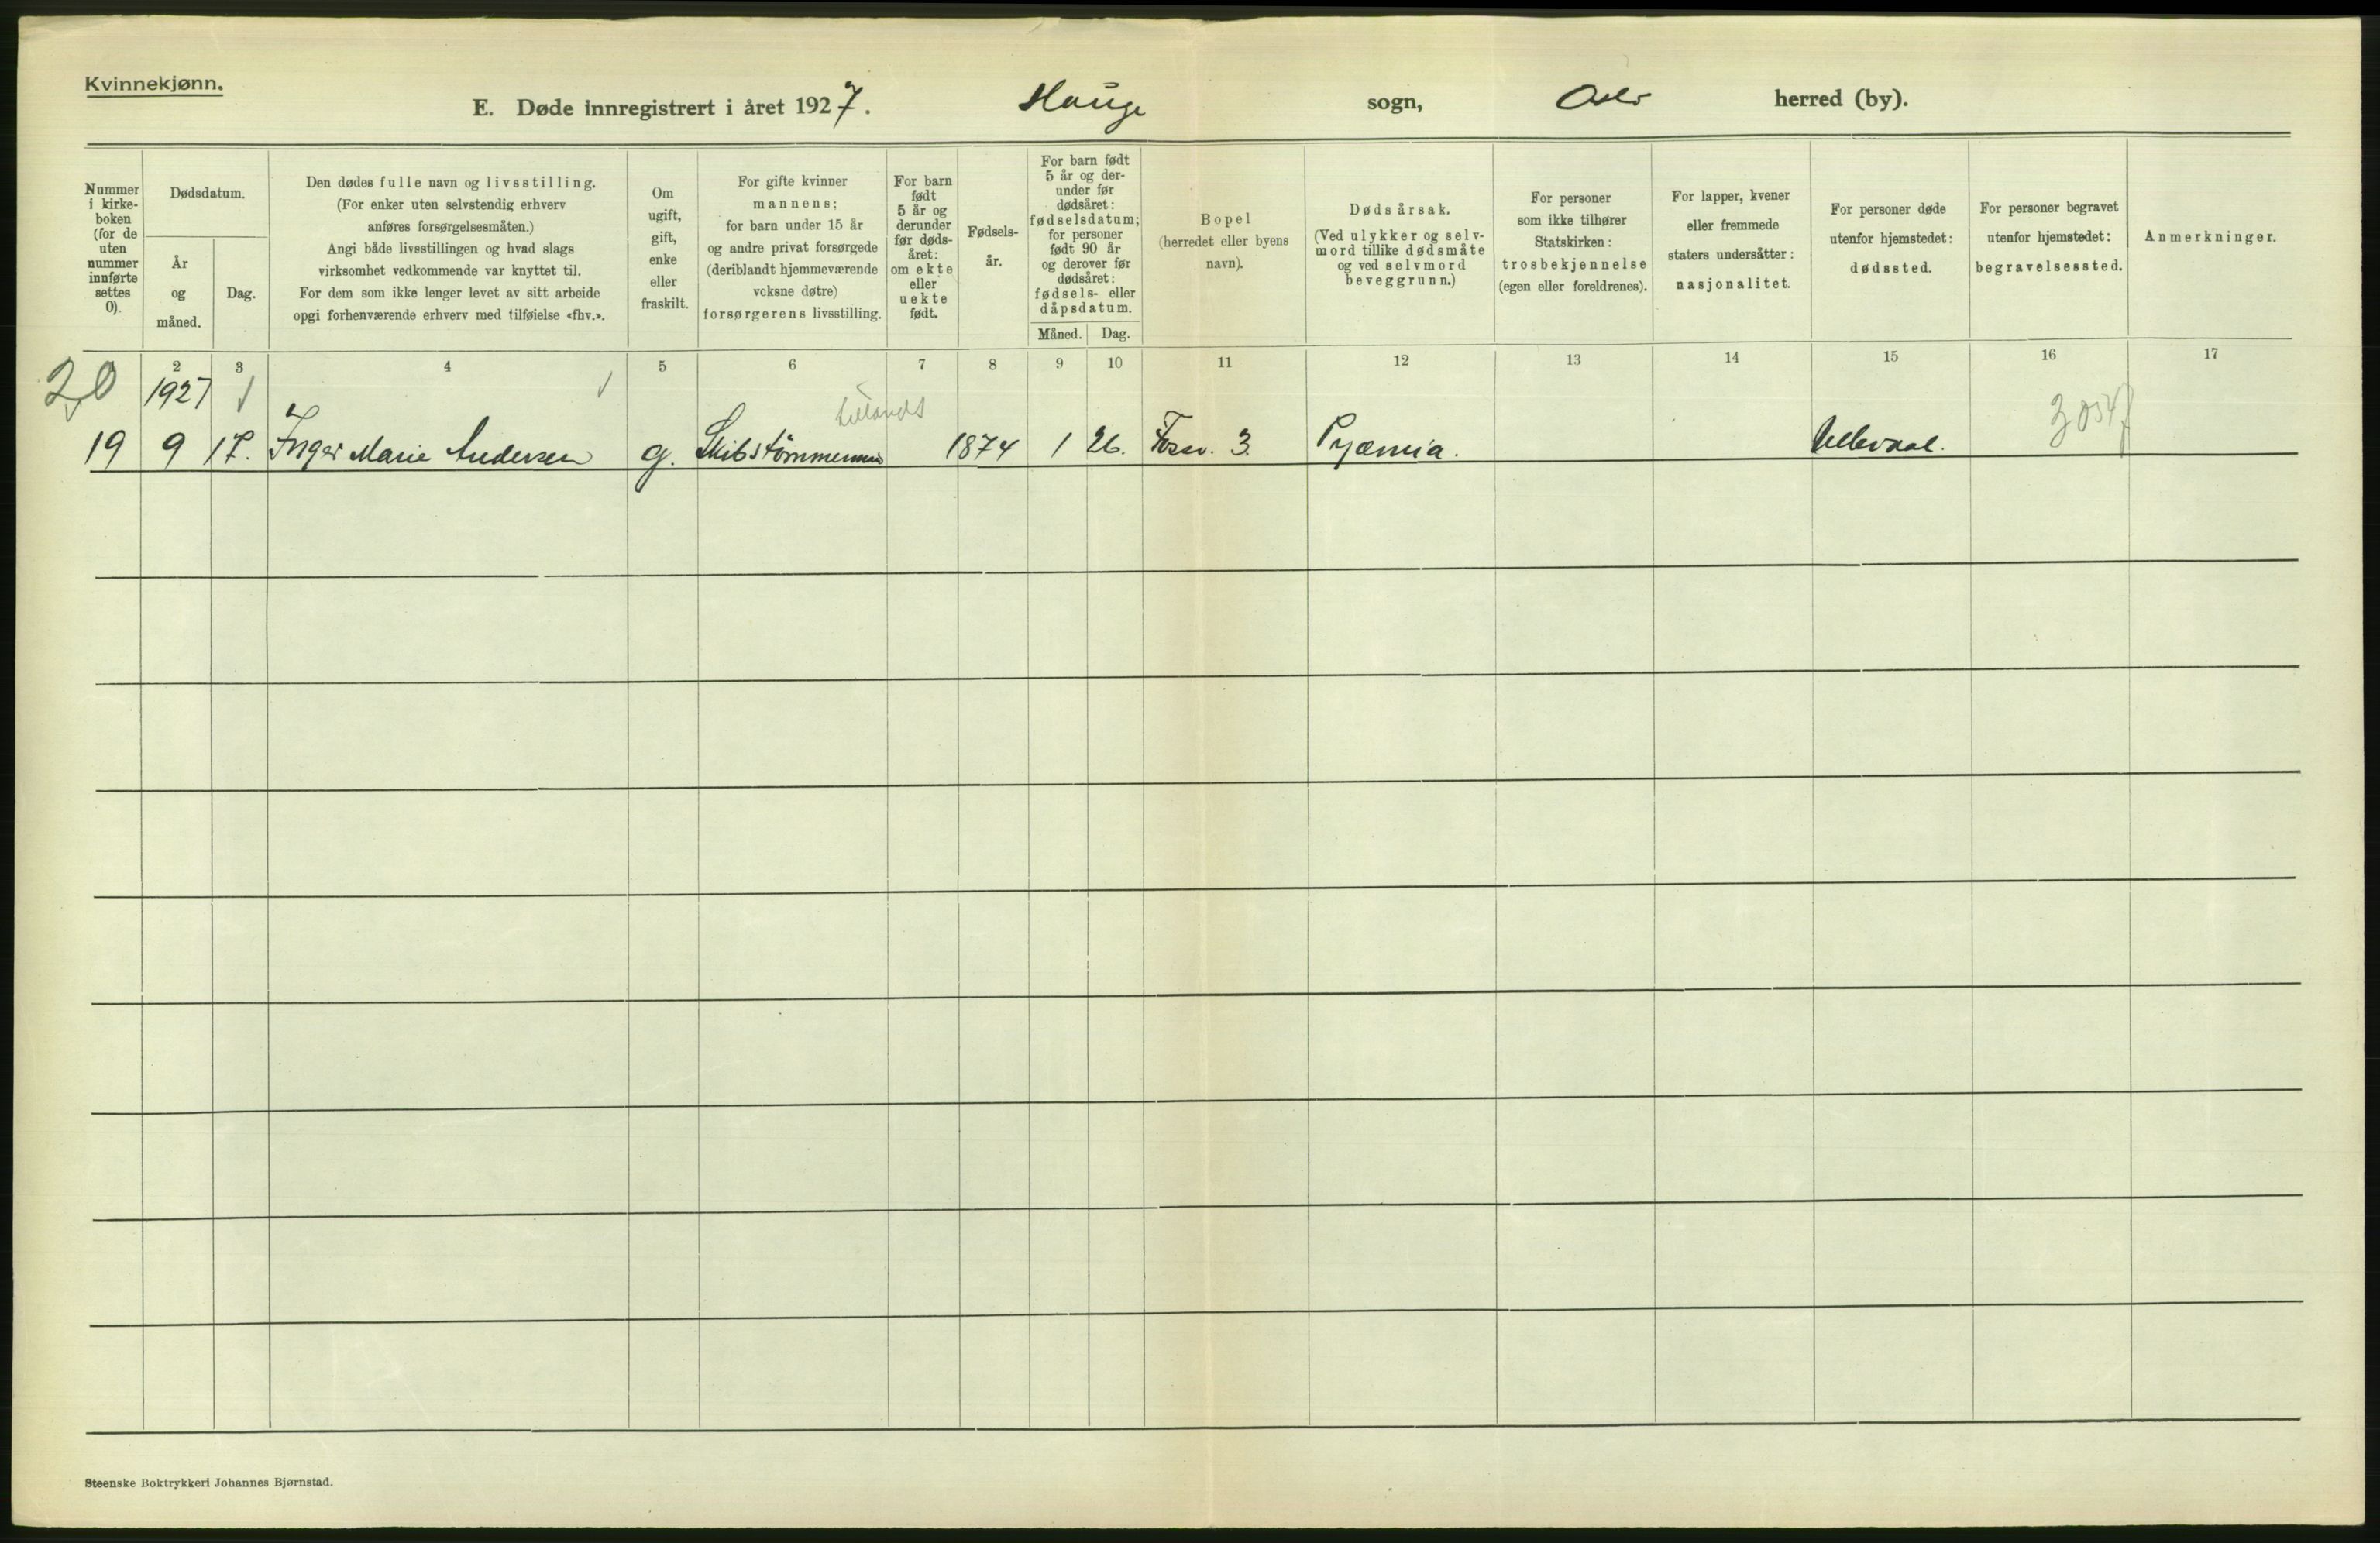 Kvinnekjønn.
E. Døde innregistrert i året 1927. Hauge sogn, Oslo herred (by).
Nummer i kirke- boken (for de uten nummer innførte settes 0).
Dødsdatum.
År og måned.
Dag.
Den dødes fulle navn og livsstilling.
(For enker uten selvstendig erhverv
anføres forsørgelsesmåten.)
Angi både livsstillingen og hvad slags
virksomhet vedkommende var knyttet til.
For dem som ikke lenger levet av sitt arbeide
opgi forhenværende erhverv med tilføielse «fhv.».
Om
ugift,
gift,
enke
eller
fraskilt.
For gifte kvinner
mannens;
for barn under 15 år
og andre privat forsørgede
(deriblandt hjemmeværende
voksne døtre)
forsørgerens livsstilling.
For barn
født
5 år og
derunder
før døds-
året:
om ekte
eller
uekte
født.
Fødsels-
år.
For barn født
5 år og der-
under før
dødsåret:
fødselsdatum;
for personer
født 90 år
og derover før
dødsåret:
fødsels- eller
dåpsdatum.
Måned. Dag.
Bopel
(herredet eller byens
navn).
Dødsårsak.
(Ved ulykker og selv-
mord tillike dødsmåte
og ved selvmord
beveggrunn.)
For personer
som ikke tilhører
Statskirken:
trosbekjennelse
(egen eller foreldrenes).
For lapper, kvener
eller fremmede
staters undersåtter:
nasjonalitet.
For personer døde
utenfor hjemstedet:
dødssted.
For personer begravet
utenfor hjemstedet:
begravelsessted.
Anmerkninger.
2 3 4 5 6 7 8 9 10 11 12 13 14 15 16 17
20 1927
19 9 17. Inger Marie Andersen g. Skibstømmermann 1874 1 26. Fossv. 3. Pyæmia. Ullevaal.
Steenske Boktrykkeri Johannes Bjørnstad.